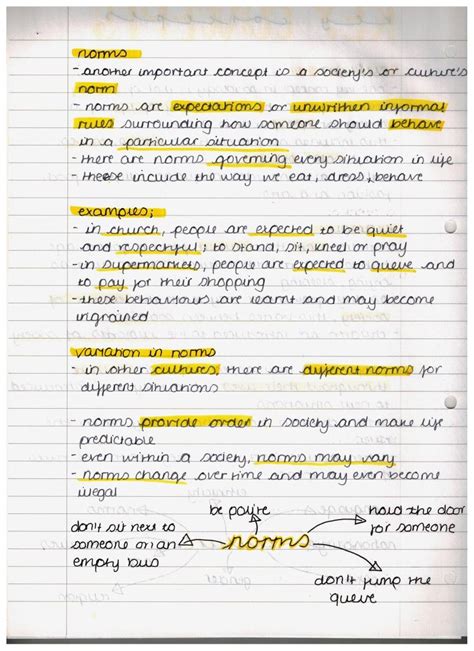 norms
- another important concept is a society's or culture's
norm
- norms are expectations or unwritten informal
rules surrounding how someone should behave
in a particular situation
- there are norms governing every situation in life
- these include the way we eat, dress, behave
examples;
- in church, people are expected to be quiet
and respectful; to stand, sit, kneel or pray
- in supermarkets, people are expected to queue and
to pay for their shopping
- these behaviours are learnt and may become
ingrained
variation in norms
- in other cultures, there are different norms for
different situations
- norms provide order in society and make life
predictable
- even within a society, norms may vary
- norms change over time and may even become
illegal
be polite
hold the door
for someone
don't sit next to
someone on an
empty bus
norms
don't jump the
queue